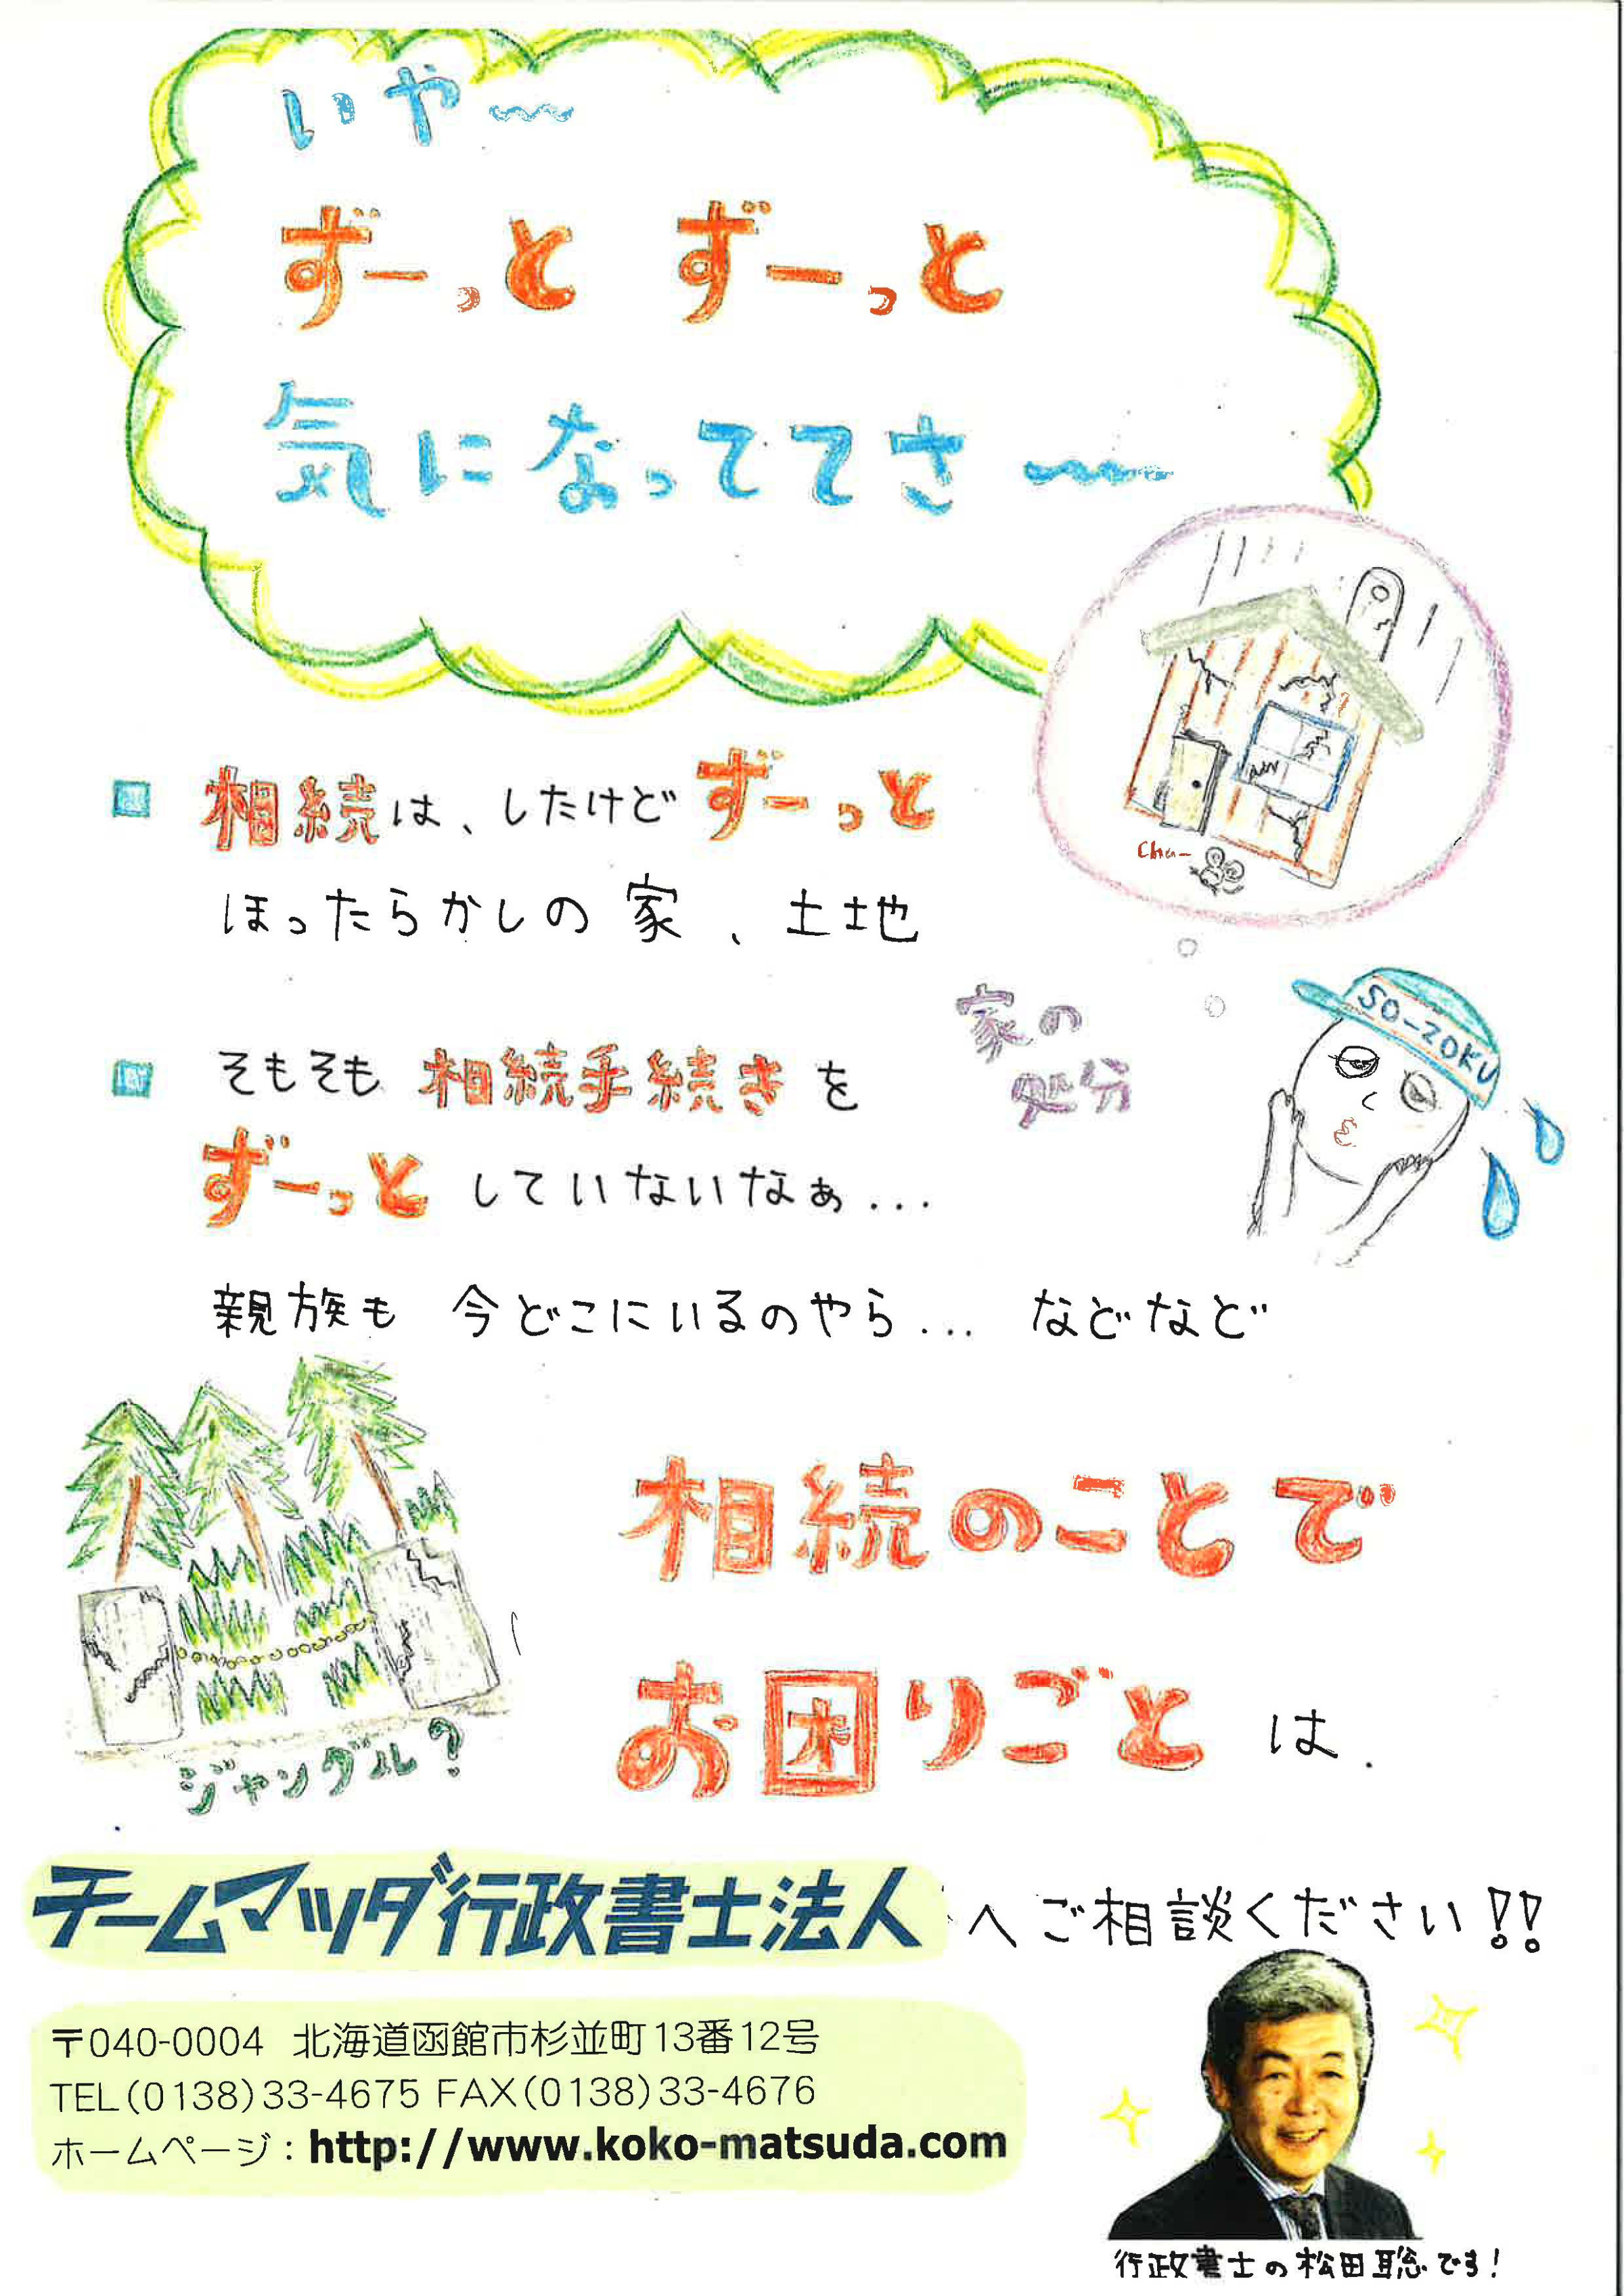 いや〜
ずーっと ずーっと
気になっててさ〜
相続は、したけどずーっと
ほったらかしの家、土地
Chu-
家の
処分
SO-ZOKU
そもそも相続手続きを
ずーっとしていないなぁ...
親族も 今どこにいるのやら... などなど
ジャングル?
相続のことで
お困りごとは、
チームマツダ行政書士法人へご相談ください!!
〒040-0004 北海道函館市杉並町13番12号
TEL(0138)33-4675 FAX(0138)33-4676
ホームページ:http://www.koko-matsuda.com
行政書士の松田聡です!